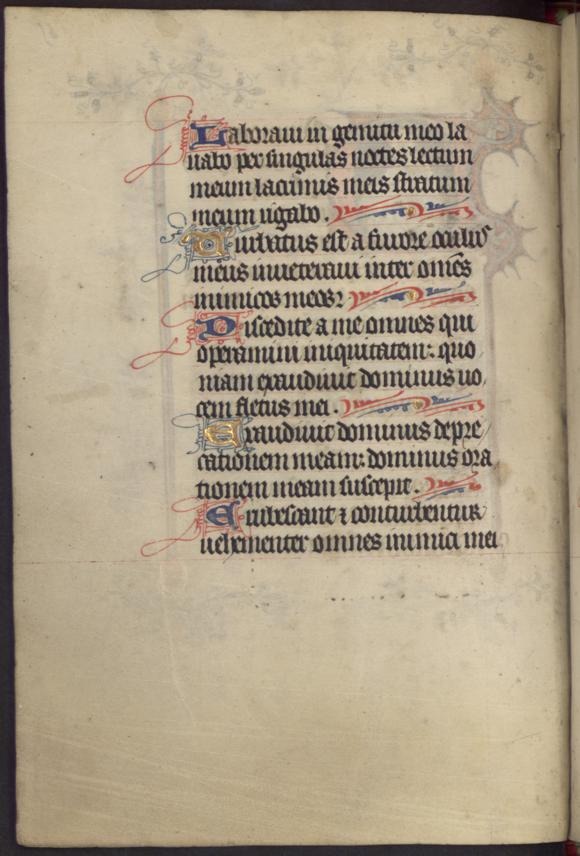 Laboraui in gemitu meo la
uabo per singulas noctes lectum
meum lacrimis meis stratum
meum rigabo.
Turbatus est a furore oculus
meus inueteraui inter omēs
inimicos meos:
Discedite a me omnes qui
operamini iniquitatem: quo
niam exaudiuit dominus uo
cem fletus mei.
Exaudiuit dominus depre
cationem meam: dominus ora
tionem meam suscepit.
Erubescant ⁊ conturbentur
uehementer omnes inimici mei